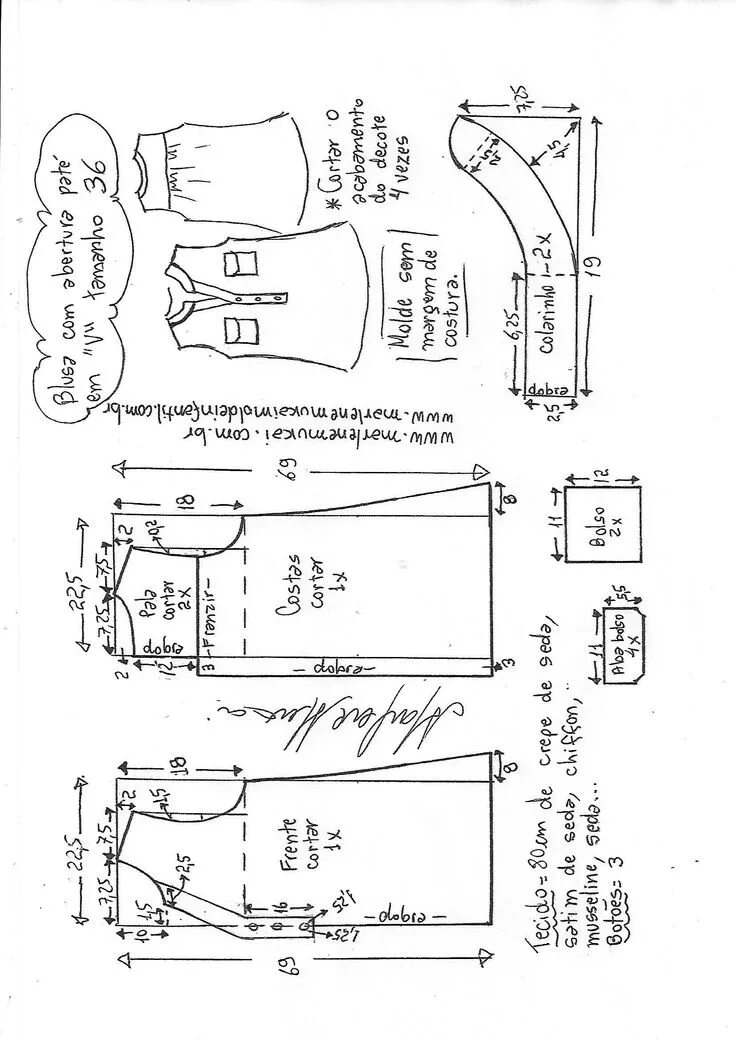 Blusa com abertura paté
em "V" tamanho 36
* Cortar o
acabamento
do decote
4 vezes
Molde sem
margem de
costura.
www.marlenemukai.com.br
www.marlenemukaimoldeinfantil.com.br
7,25
2,5
4,5
19
colarinho - 2x
6,25
dobra
2,5
69
18
8
22,5
7,5
7,25
2
0,2
2
12
3
3
Pala
cortar
2x
dobra
- Franzir -
Costas
cortar
1x
- dobra -
12
11
Bolso
2x
5,5
11
Aba bolso
4x
Marlene Mukai
69
18
8
22,5
7,5
7,25
2
1,5
2,5
1,5
10
16
1,25
1,25
Frente
cortar
1x
- dobra -
Tecido = 80cm de crepe de seda,
satim de seda, chiffon,
musseline, seda...
Botões = 3